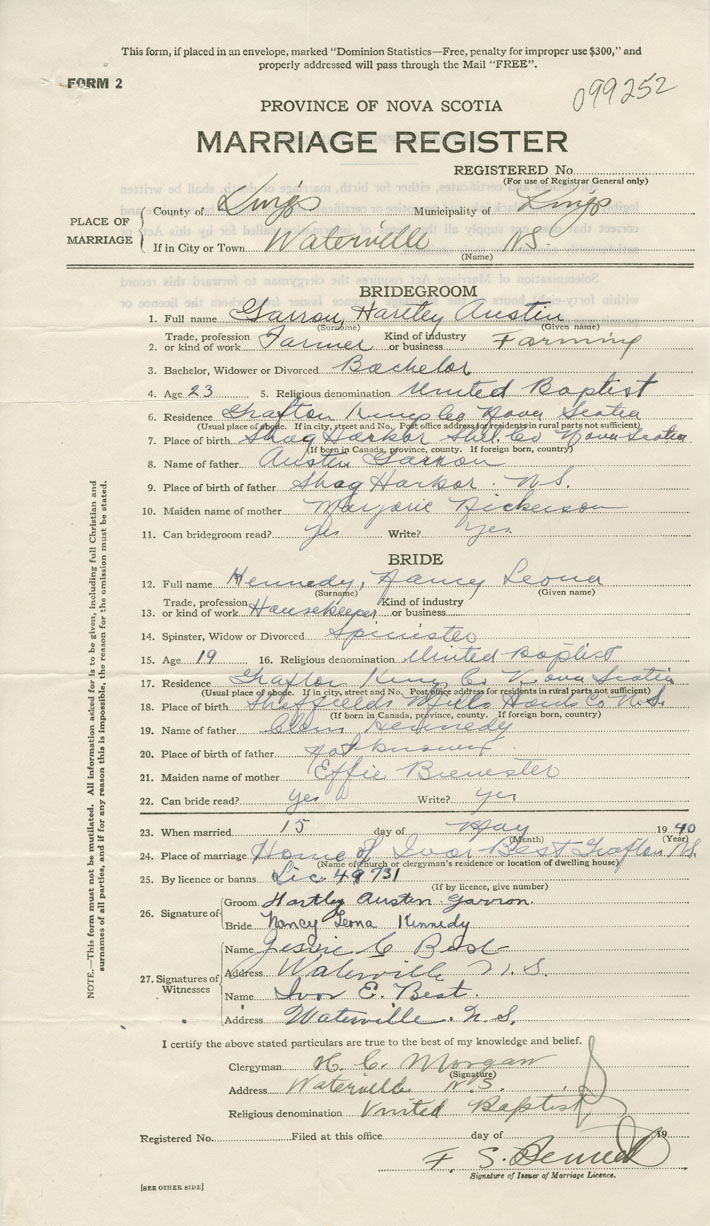 This form, if placed in an envelope, marked "Dominion Statistics—Free, penalty for improper use $300," and
properly addressed will pass through the Mail "FREE".
FORM 2
099252
PROVINCE OF NOVA SCOTIA
MARRIAGE REGISTER
REGISTERED No.
(For use of Registrar General only)
PLACE OF MARRIAGE
County of Kings Municipality of Kings
If in City or Town Waterville N.S.
(Name)
BRIDEGROOM
1. Full name Garron, Hartley Austin
(Surname) (Given name)
2. Trade, profession or kind of work Farmer Kind of industry or business Farming
3. Bachelor, Widower or Divorced Bachelor
4. Age 23 5. Religious denomination United Baptist
6. Residence Grafton Kings Co Nova Scotia
(Usual place of abode. If in city, street and No. Post office address for residents in rural parts not sufficient)
7. Place of birth Shag Harbor Shel. Co Nova Scotia
(If born in Canada, province, county. If foreign born, country)
8. Name of father Austin Garron
9. Place of birth of father Shag Harbor. N.S.
10. Maiden name of mother Marjorie Nickerson
11. Can bridegroom read? Yes Write? Yes.
BRIDE
12. Full name Kennedy, Nancy Leona
(Surname) (Given name)
13. Trade, profession or kind of work Housekeeper Kind of industry or business
14. Spinster, Widow or Divorced Spinster
15. Age 19 16. Religious denomination United Baptist
17. Residence Grafton Kings Co Nova Scotia
(Usual place of abode. If in city, street and No. Post office address for residents in rural parts not sufficient)
18. Place of birth Sheffields Mills Hants Co N.S.
(If born in Canada, province, county. If foreign born, country)
19. Name of father Kennedy
20. Place of birth of father not known
21. Maiden name of mother Effie Brewster
22. Can bride read? yes Write? yes
23. When married 15 day of May 1940
(Month) (Year)
24. Place of marriage Home of Ivor Best Grafton N.S.
(Name of church or clergyman's residence or location of dwelling house)
25. By licence or banns Lic 49731
(If by licence, give number)
26. Signature of
Groom Hartley Austin Garron.
Bride Nancy Leona Kennedy
27. Signatures of Witnesses
Name Jessie C Best
Address Waterville N.S.
Name Ivor E. Best.
Address Waterville. N.S.
I certify the above stated particulars are true to the best of my knowledge and belief.
Clergyman H. C. Morgan
(Signature)
Address Waterville N.S.
Religious denomination United Baptist
Registered No. Filed at this office day of 19
F. S.
Signature of Issuer of Marriage Licence.
[SEE OTHER SIDE]
NOTE.—This form must not be mutilated. All information asked for is to be given, including full Christian and
surnames of all parties, and if for any reason this is impossible, the reason for the omission must be stated.